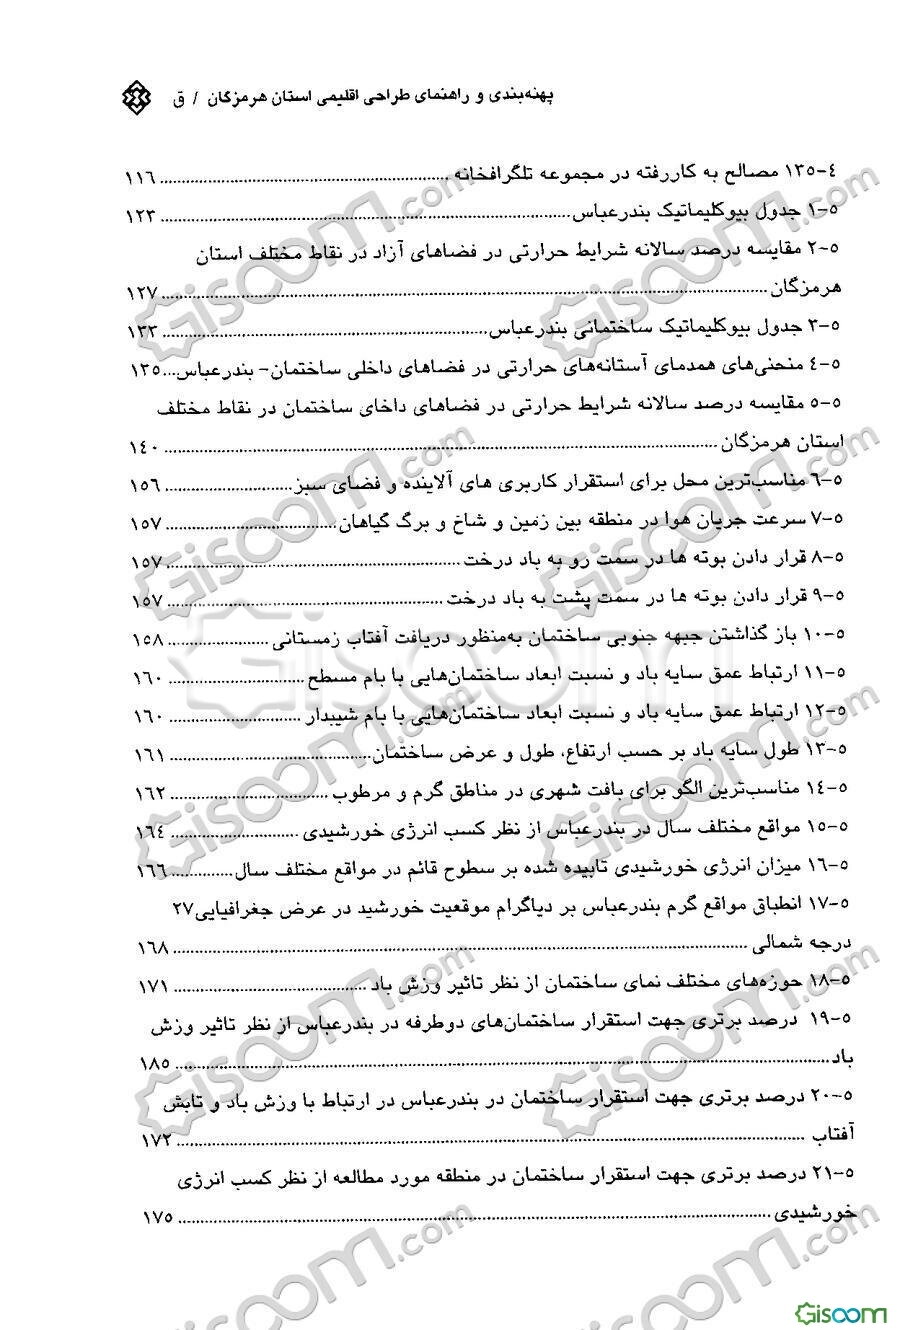 پهنه‌بندی و راهنمای طراحی اقلیمی استان هرمزگان / ق
۴-۱۳۵ مصالح به کاررفته در مجموعه تلگرافخانه ........ ۱۱۶
۵-۱ جدول بیوکلیماتیک بندرعباس ........ ۱۲۳
۵-۲ مقایسه درصد سالانه شرایط حرارتی در فضاهای آزاد در نقاط مختلف استان
هرمزگان ........ ۱۲۷
۵-۳ جدول بیوکلیماتیک ساختمانی بندرعباس ........ ۱۳۳
۵-۴ منحنی‌های همدمای آستانه‌های حرارتی در فضاهای داخلی ساختمان- بندرعباس.... ۱۳۵
۵-۵ مقایسه درصد سالانه شرایط حرارتی در فضاهای داخای ساختمان در نقاط مختلف
استان هرمزگان ........ ۱۴۰
۵-۶ مناسب‌ترین محل برای استقرار کاربری های آلاینده و فضای سبز ........ ۱۵۶
۵-۷ سرعت جریان هوا در منطقه بین زمین و شاخ و برگ گیاهان ........ ۱۵۷
۵-۸ قرار دادن بوته ها در سمت رو به باد درخت ........ ۱۵۷
۵-۹ قرار دادن بوته ها در سمت پشت به باد درخت ........ ۱۵۷
۵-۱۰ باز گذاشتن جبهه جنوبی ساختمان به‌منظور دریافت آفتاب زمستانی ........ ۱۵۸
۵-۱۱ ارتباط عمق سایه باد و نسبت ابعاد ساختمان‌هایی با بام مسطح ........ ۱۶۰
۵-۱۲ ارتباط عمق سایه باد و نسبت ابعاد ساختمان‌هایی با بام شیبدار ........ ۱۶۰
۵-۱۳ طول سایه باد بر حسب ارتفاع، طول و عرض ساختمان ........ ۱۶۱
۵-۱۴ مناسب‌ترین الگو برای بافت شهری در مناطق گرم و مرطوب ........ ۱۶۲
۵-۱۵ مواقع مختلف سال در بندرعباس از نظر کسب انرژی خورشیدی ........ ۱۶۴
۵-۱۶ میزان انرژی خورشیدی تابیده شده بر سطوح قائم در مواقع مختلف سال ........ ۱۶۶
۵-۱۷ انطباق مواقع گرم بندرعباس بر دیاگرام موقعیت خورشید در عرض جغرافیایی۲۷
درجه شمالی ........ ۱۶۸
۵-۱۸ حوزه‌های مختلف نمای ساختمان از نظر تاثیر وزش باد ........ ۱۷۱
۵-۱۹ درصد برتری جهت استقرار ساختمان‌های دوطرفه در بندرعباس از نظر تاثیر وزش
باد ........ ۱۸۵
۵-۲۰ درصد برتری جهت استقرار ساختمان در بندرعباس در ارتباط با وزش باد و تابش
آفتاب ........ ۱۷۲
۵-۲۱ درصد برتری جهت استقرار ساختمان در منطقه مورد مطالعه از نظر کسب انرژی
خورشیدی ........ ۱۷۵
Gisoom